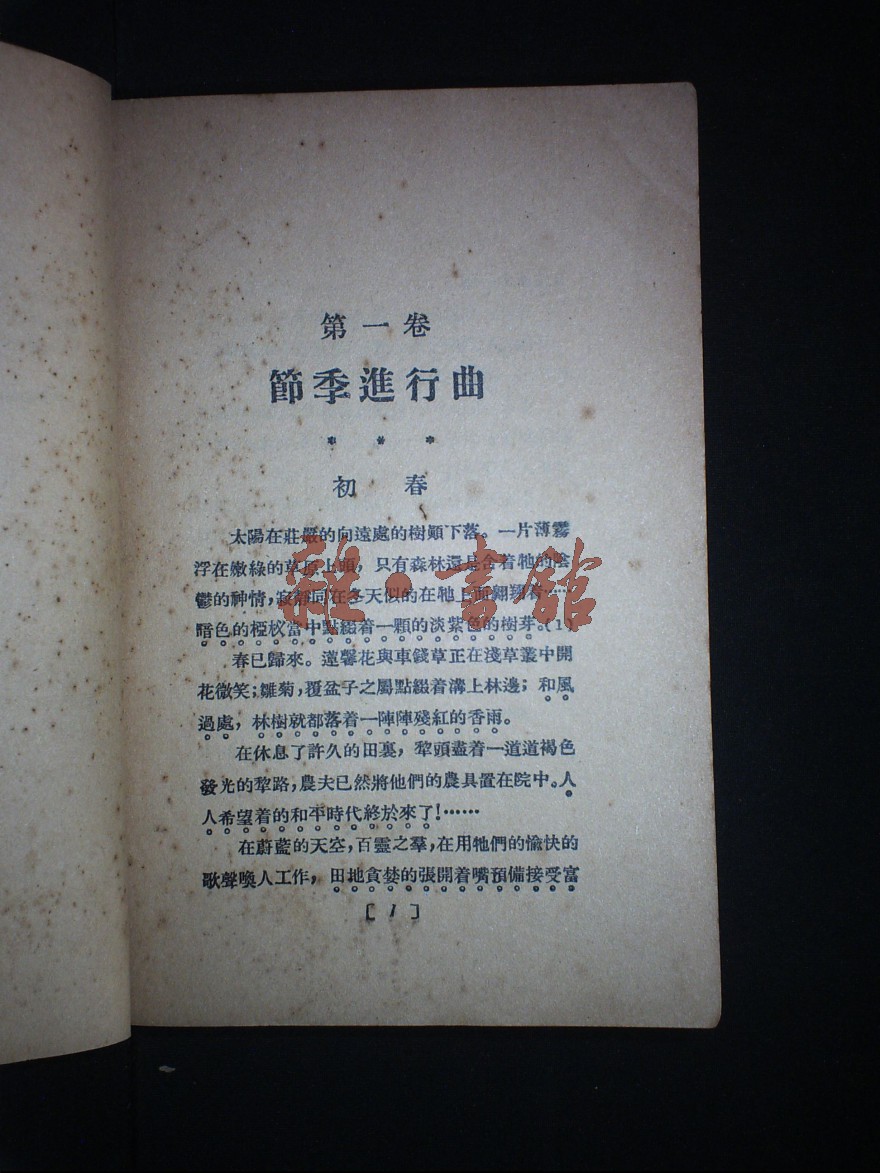 第一卷
節季進行曲
* * *
初春
太陽在莊嚴的向遠處的樹顚下落。一片薄霧
浮在嫩綠的草原上頭，只有森林還是含着牠的陰
鬱的神情，寂靜同在冬天似的在牠上面翱翔着……
暗色的椏杈當中點綴着一顆的淡紫色的樹芽。(1)
春已歸來。遠馨花與車錢草正在淺草叢中開
花微笑；雛菊，覆盆子之屬點綴着溝上林邊；和風
過處，林樹就都落着一陣陣殘紅的香雨。
在休息了許久的田裏，犂頭盡着一道道褐色
發光的犂路，農夫已然將他們的農具置在院中。人
人希望着的和平時代終於來了！……
在蔚藍的天空，百靈之羣，在用牠們的愉快的
歌聲喚人工作，田地貪婪的張開着嘴預備接受富
〔1〕
雜·書館